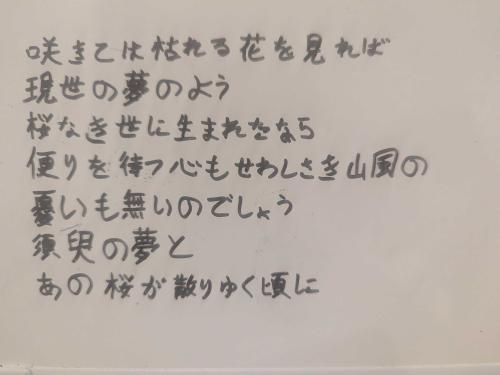 咲きては枯れる花を見れば
現世の夢のよう
桜なき世に生まれたなら
便りを待つ心もせわしさき山風の
憂いも無いのでしょう
須臾の夢と
あの桜が散りゆく頃に